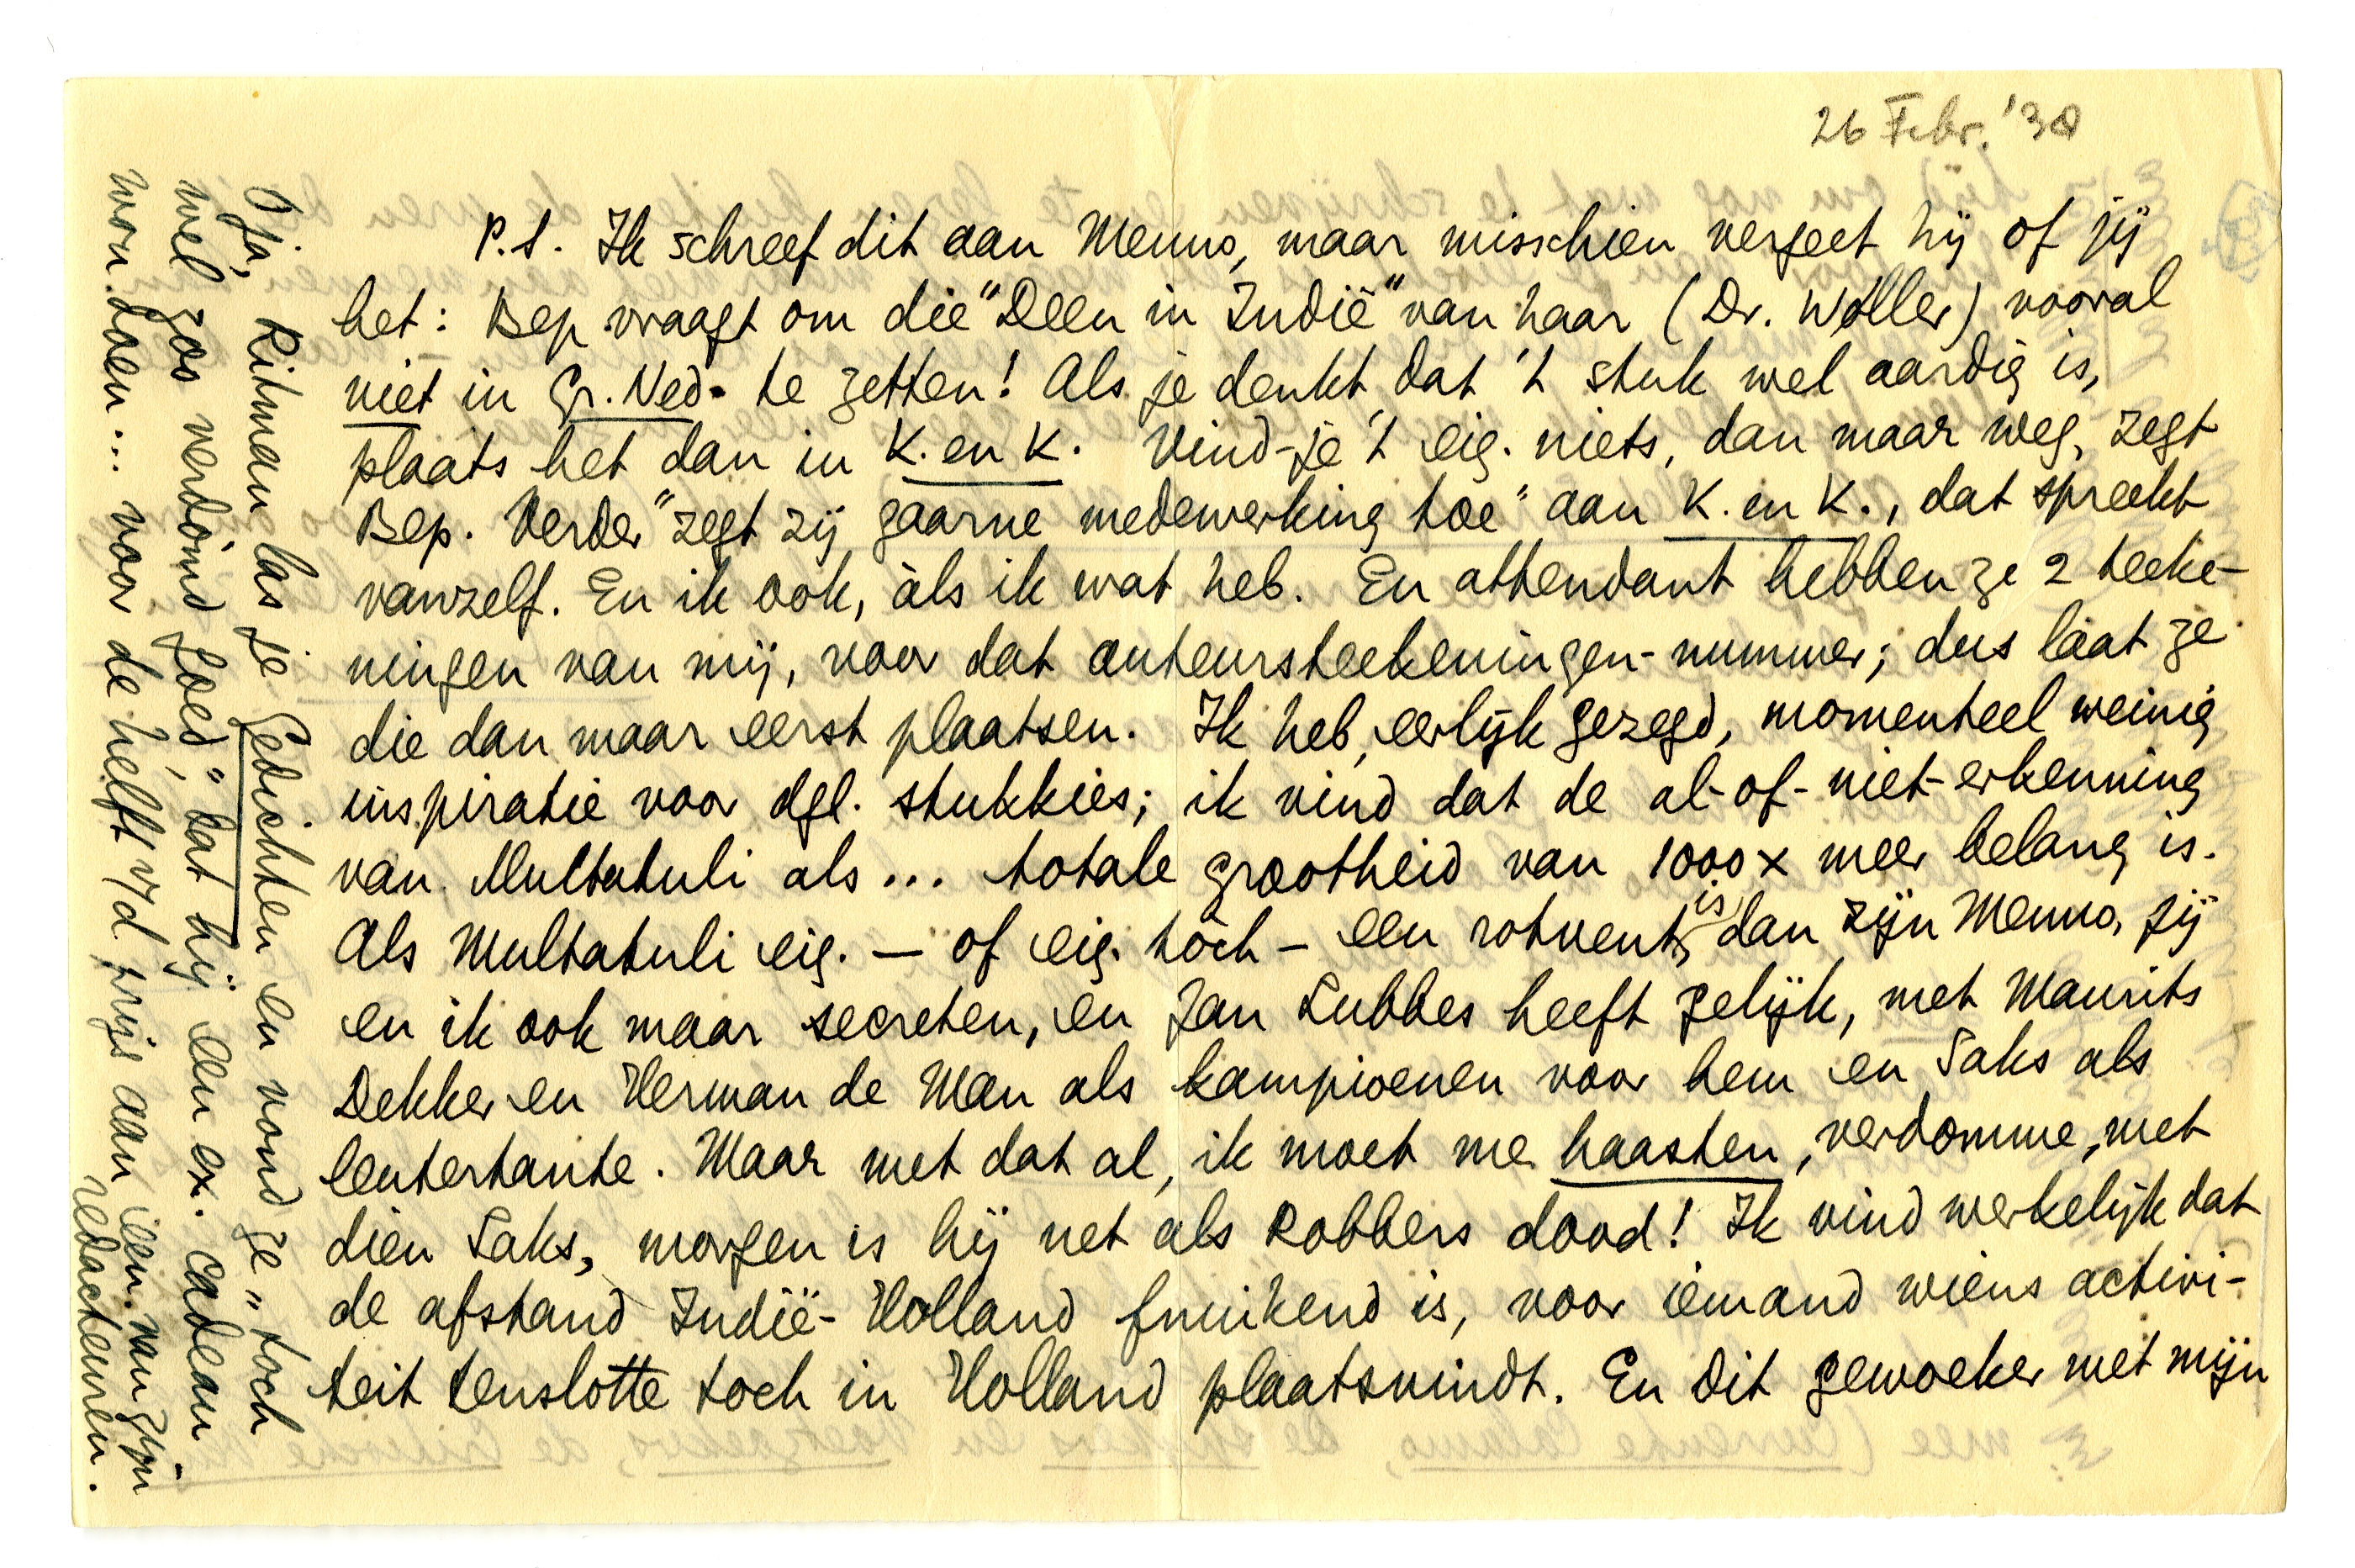 26 Febr. '38
P.S. Ik schreef dit aan Menno, maar misschien vergeet hij of jij
het: Bep vraagt om die "Deen in Indië" van haar (Dr. Woller) vooral
niet in Gr. Ned. te zetten! Als je denkt dat 't stuk wel aardig is,
plaats het dan in K. en K. Vind-je 't eig. niets, dan maar weg, zegt
Bep. Verder "zegt zij gaarne medewerking toe" aan K. en K., dat spreekt
vanzelf. En ik ook, àls ik wat heb. En attendant hebben ze 2 teeke-
ningen van mij, voor dat auteursteekeningen-nummer; dus láat ze
die dan maar eerst plaatsen. Ik heb, eerlijk gezegd, momenteel weinig
inspiratie voor dgl. stukkies; ik vind dat de al-of-niet-erkenning
van Multatuli als... totale grootheid van 1000 x meer belang is.
Als Multatuli eig. — of eig. tòch — een rotvent is, dan zijn Menno, jij
en ik ook maar secreten, en Jan Lubbes heeft gelijk, met Maurits
Dekker en Herman de Man als kampioenen voor hem en Saks als
leutertante. Maar met dat al, ik moet me haasten, verdomme, met
dien Saks, morgen is hij net als Robbers dood! Ik vind werkelijk dat
de afstand Indië-Holland fnuikend is, voor iemand wiens activi-
teit tenslotte toch in Holland plaatsvindt. En dit gewoeker met mijn
O ja, Ritman las je Gedichten en vond ze "toch
wel zoo verdómd goed," dat hij een ex. cadeau
wou doen... voor de helft v/d prijs aan een van zijn
redacteuren.